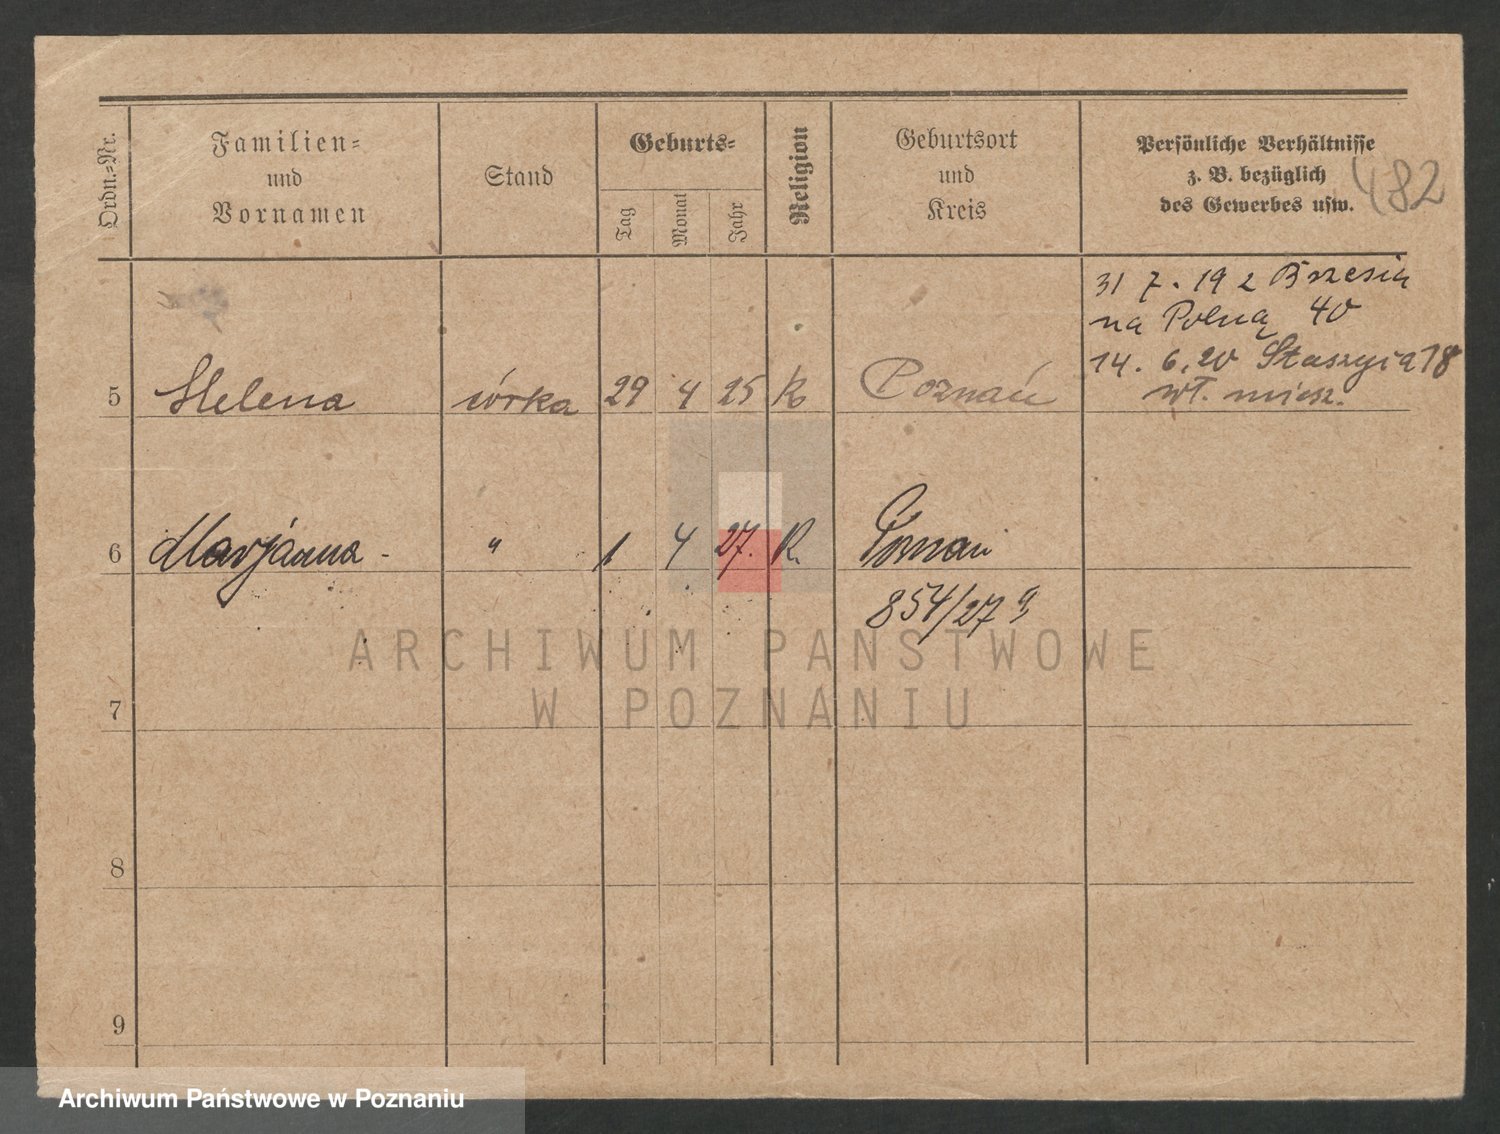 Ordn.-Nr.
Familien-
und
Vornamen
Stand
Geburts-
Tag
Monat
Jahr
Religion
Geburtsort
und
Kreis
Persönliche Verhältnisse
z. B. bezüglich
des Gewerbes usw.
482
31 7. 19 z
na Polną 40
14. 6. 20 Staszyca 18
wł. miesz.
5 Helena córka 29 4 25 k Poznań
6 Marjanna - " 1 4 27. K. Poznań
854/27
7
8
9
ARCHIWUM PAŃSTWOWE
W POZNANIU
Archiwum Państwowe w Poznaniu